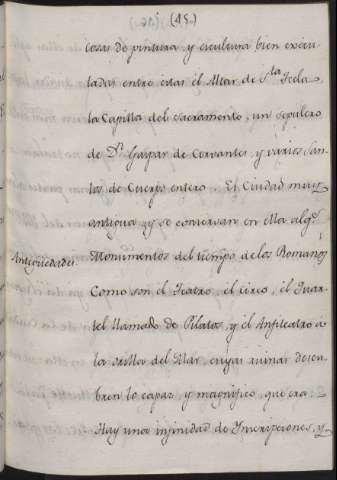 (15.)
cosas de pintura y escultura bien execu-
tadas entre estas el Altar de Sta Tecla
la Capilla del Sacramento, un sepulcro
de Dn Gaspar de Cervantes, y varios San-
tos de Cuerpo entero. Es Ciudad muy
antigua, y se conservan en ella algs
Antiguedades. Monumentos del tiempo de los Romanos
Como son el Teatro, el circo, el Quar-
tel llamado de Pilatos, y el Anfiteatro á
la orilla del Mar, cuyas ruinas descu-
bren lo capaz, y magnifico, que era
Hay una infinidad de Inscripciones, y